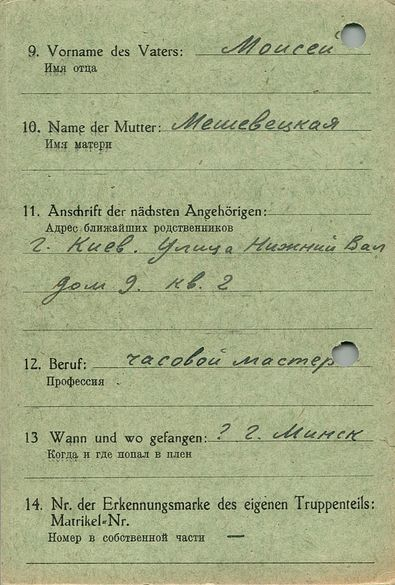 9. Vorname des Vaters: Моисей
Имя отца
10. Name der Mutter: Мешевецкая
Имя матери
11. Anschrift der nächsten Angehörigen:
Адрес ближайших родственников
г. Киев. Улица Нижний Вал
дом 9. кв. 2
12. Beruf: часовой мастер
Профессия
13 Wann und wo gefangen: ? г. Минск
Когда и где попал в плен
14. Nr. der Erkennungsmarke des eigenen Truppenteils:
Matrikel-Nr.
Номер в собственной части —